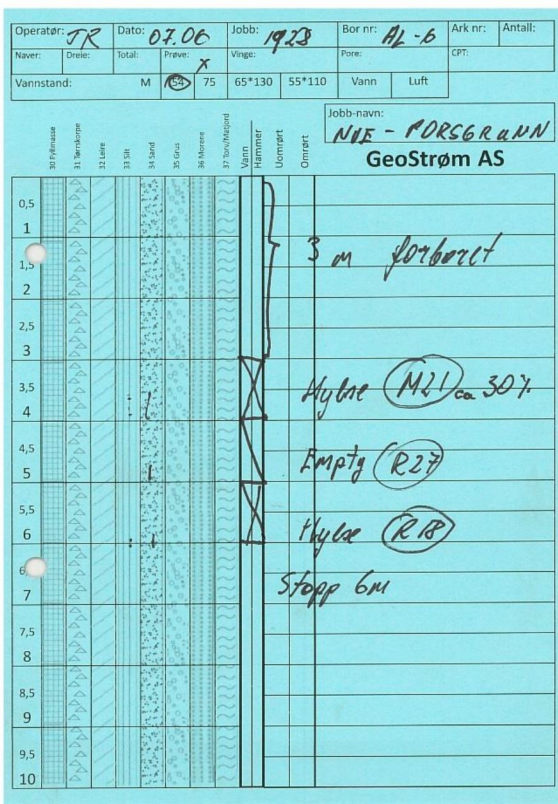 Operatør: JR Dato: 07.06 Jobb: 1923 Bor nr: AL-6 Ark nr: Antall:
Naver: Dreie: Total: Prøve: X Vinge: Pore: CPT:
Vannstand: M 54 75 65*130 55*110 Vann Luft
Jobb-navn:
NVE - PORSGRUNN
GeoStrøm AS
30 Fyllmasse
31 Tørrskorpe
32 Leire
33 Silt
34 Sand
35 Grus
36 Morene
37 Torv/Matjord
Vann
Hammer
Uomrørt
Omrørt
0,5
1
3 m forboret
1,5
2
2,5
3
3,5
Hylse M21 ca 30%
4
4,5
Empty R27
5
5,5
Hylse R18
6
6
Stopp 6m
7
7,5
8
8,5
9
9,5
10